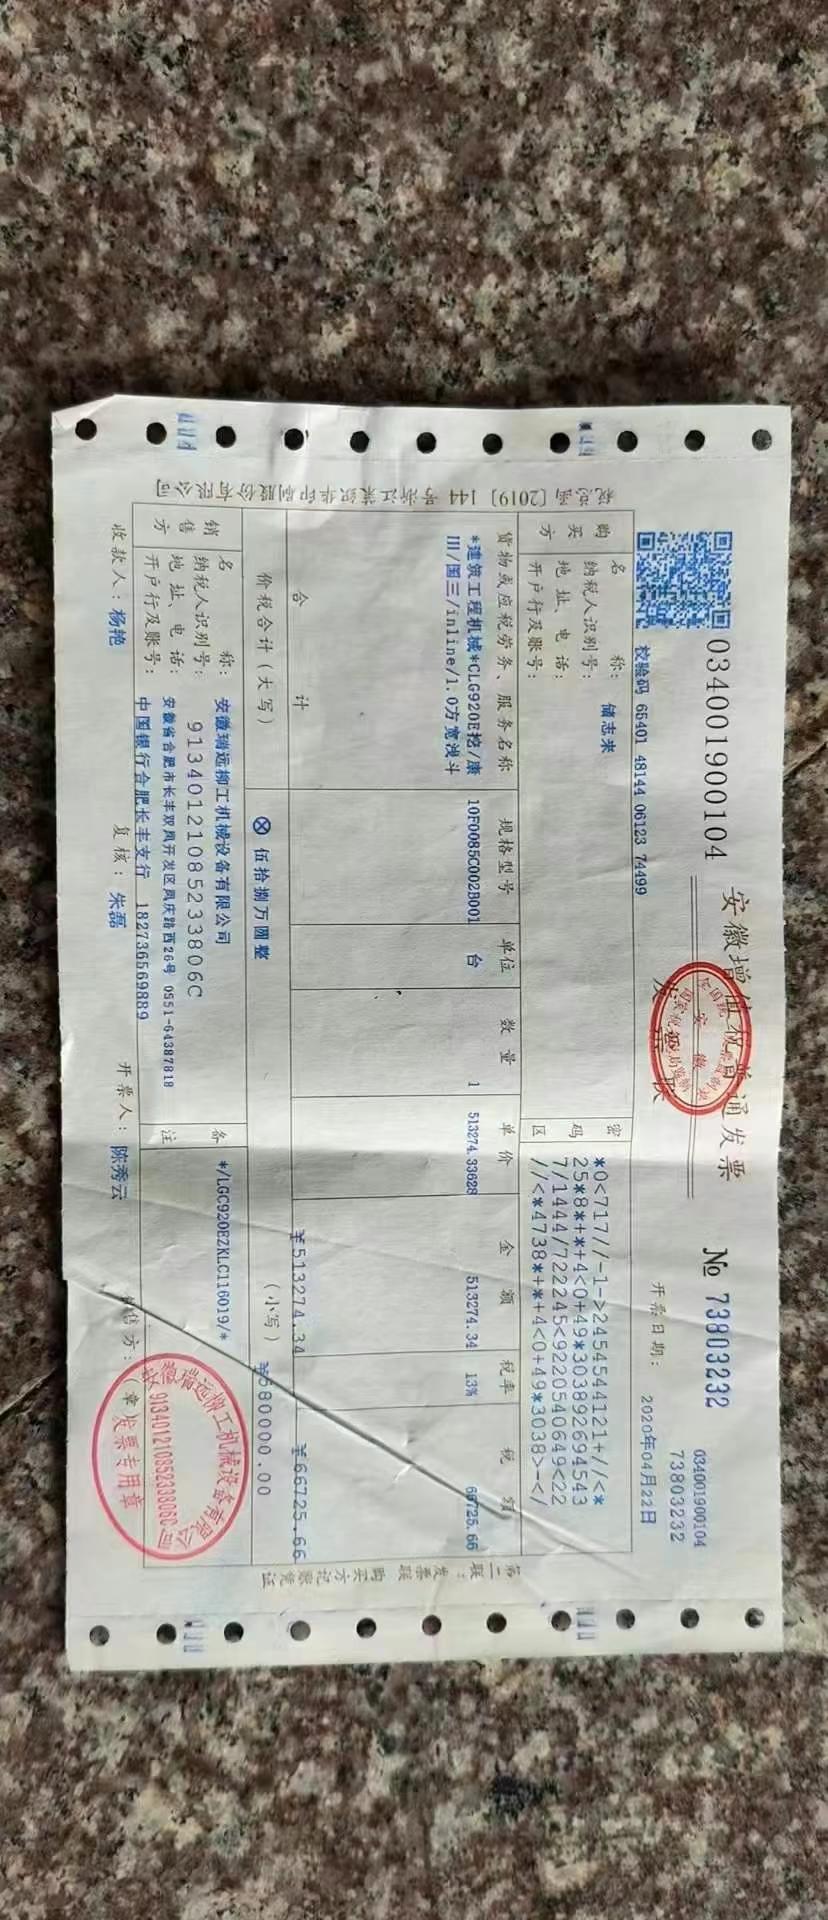 034001900104
安徽增值税普通发票
发票联
№ 73803232
034001900104
73803232
校验码 65401 48144 06123 74499
开票日期：
2020年04月22日
购买方
名称：储志来
纳税人识别号：
地址、电话：
开户行及账号：
密码区
*0<717//-1->2454544121+//<*
25*8*+*+4<0+49*303892694543
7/1444/722245<9220540649<22
//<*4738*+*+4<0+49*3038>-</
货物或应税劳务、服务名称 规格型号 单位 数量 单价 金额 税率 税额
*建筑工程机械*CLG920E挖/康 10F0085C0028001 台 1 513274.33628 513274.34 13% 66725.66
III/国三/inline/1.0方宽浅斗
合计 ¥513274.34 ¥66725.66
价税合计（大写） ⊗伍拾捌万圆整 （小写）¥580000.00
销售方
名称：安徽瑞远柳工机械设备有限公司
纳税人识别号：91340121085233806C
地址、电话：安徽省合肥市长丰双凤开发区凤庆路西26号 0551-64387818
开户行及账号：中国银行合肥长丰支行 182736569889
备注
*/LGC920EZKLC116019/*
收款人：杨艳 复核：朱磊 开票人：陈秀云 销售方：（章）
安徽瑞远柳工机械设备有限公司
91340121085233806C
发票专用章
[2019] 144号浙江
印刷股份有限公司
第二联：发票联 购买方记账凭证